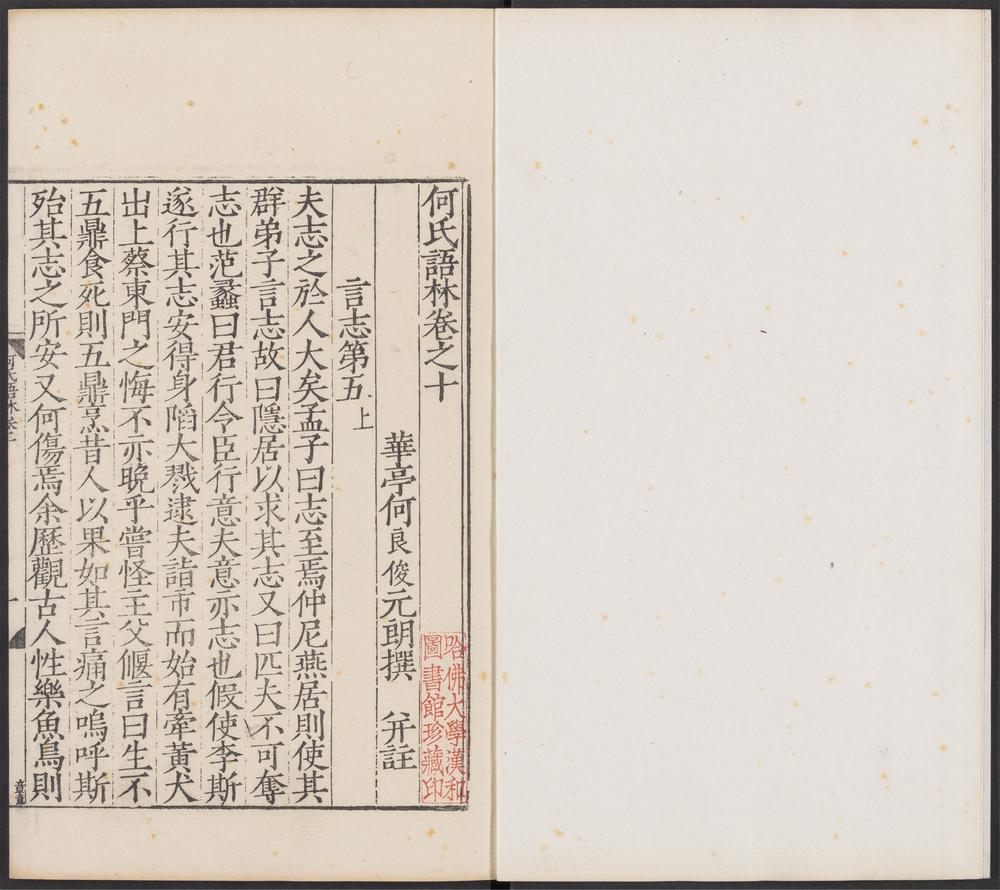 何氏語林卷之十
華亭何良俊元朗撰 并註
言志第五上
夫志之於人大矣孟子曰志至焉仲尼燕居則使其
群弟子言志故曰隱居以求其志又曰匹夫不可奪
志也范蠡曰君行令臣行意夫意亦志也假使李斯
遂行其志安得身陷大戮逮夫詣市而始有牽黃犬
出上蔡東門之悔不亦晚乎嘗怪主父偃言曰生不
五鼎食死則五鼎烹昔人以果如其言痛之嗚呼斯
殆其志之所安又何傷焉余歷觀古人性樂魚鳥則
哈佛大學漢和
圖書館珍藏印